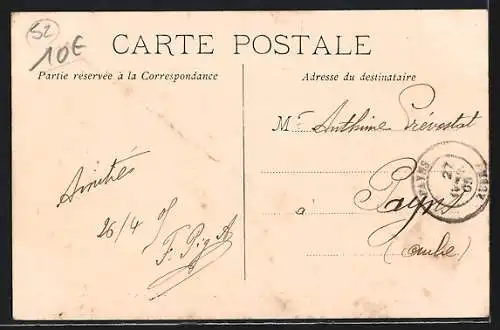 52
10€
CARTE POSTALE
Partie réservée à la Correspondance
Adresse du destinataire
Mr Anthime Prévostat
Amitiés
à Payns
26/4 05
(aube)
PAYNS
27
05
(AUBE)